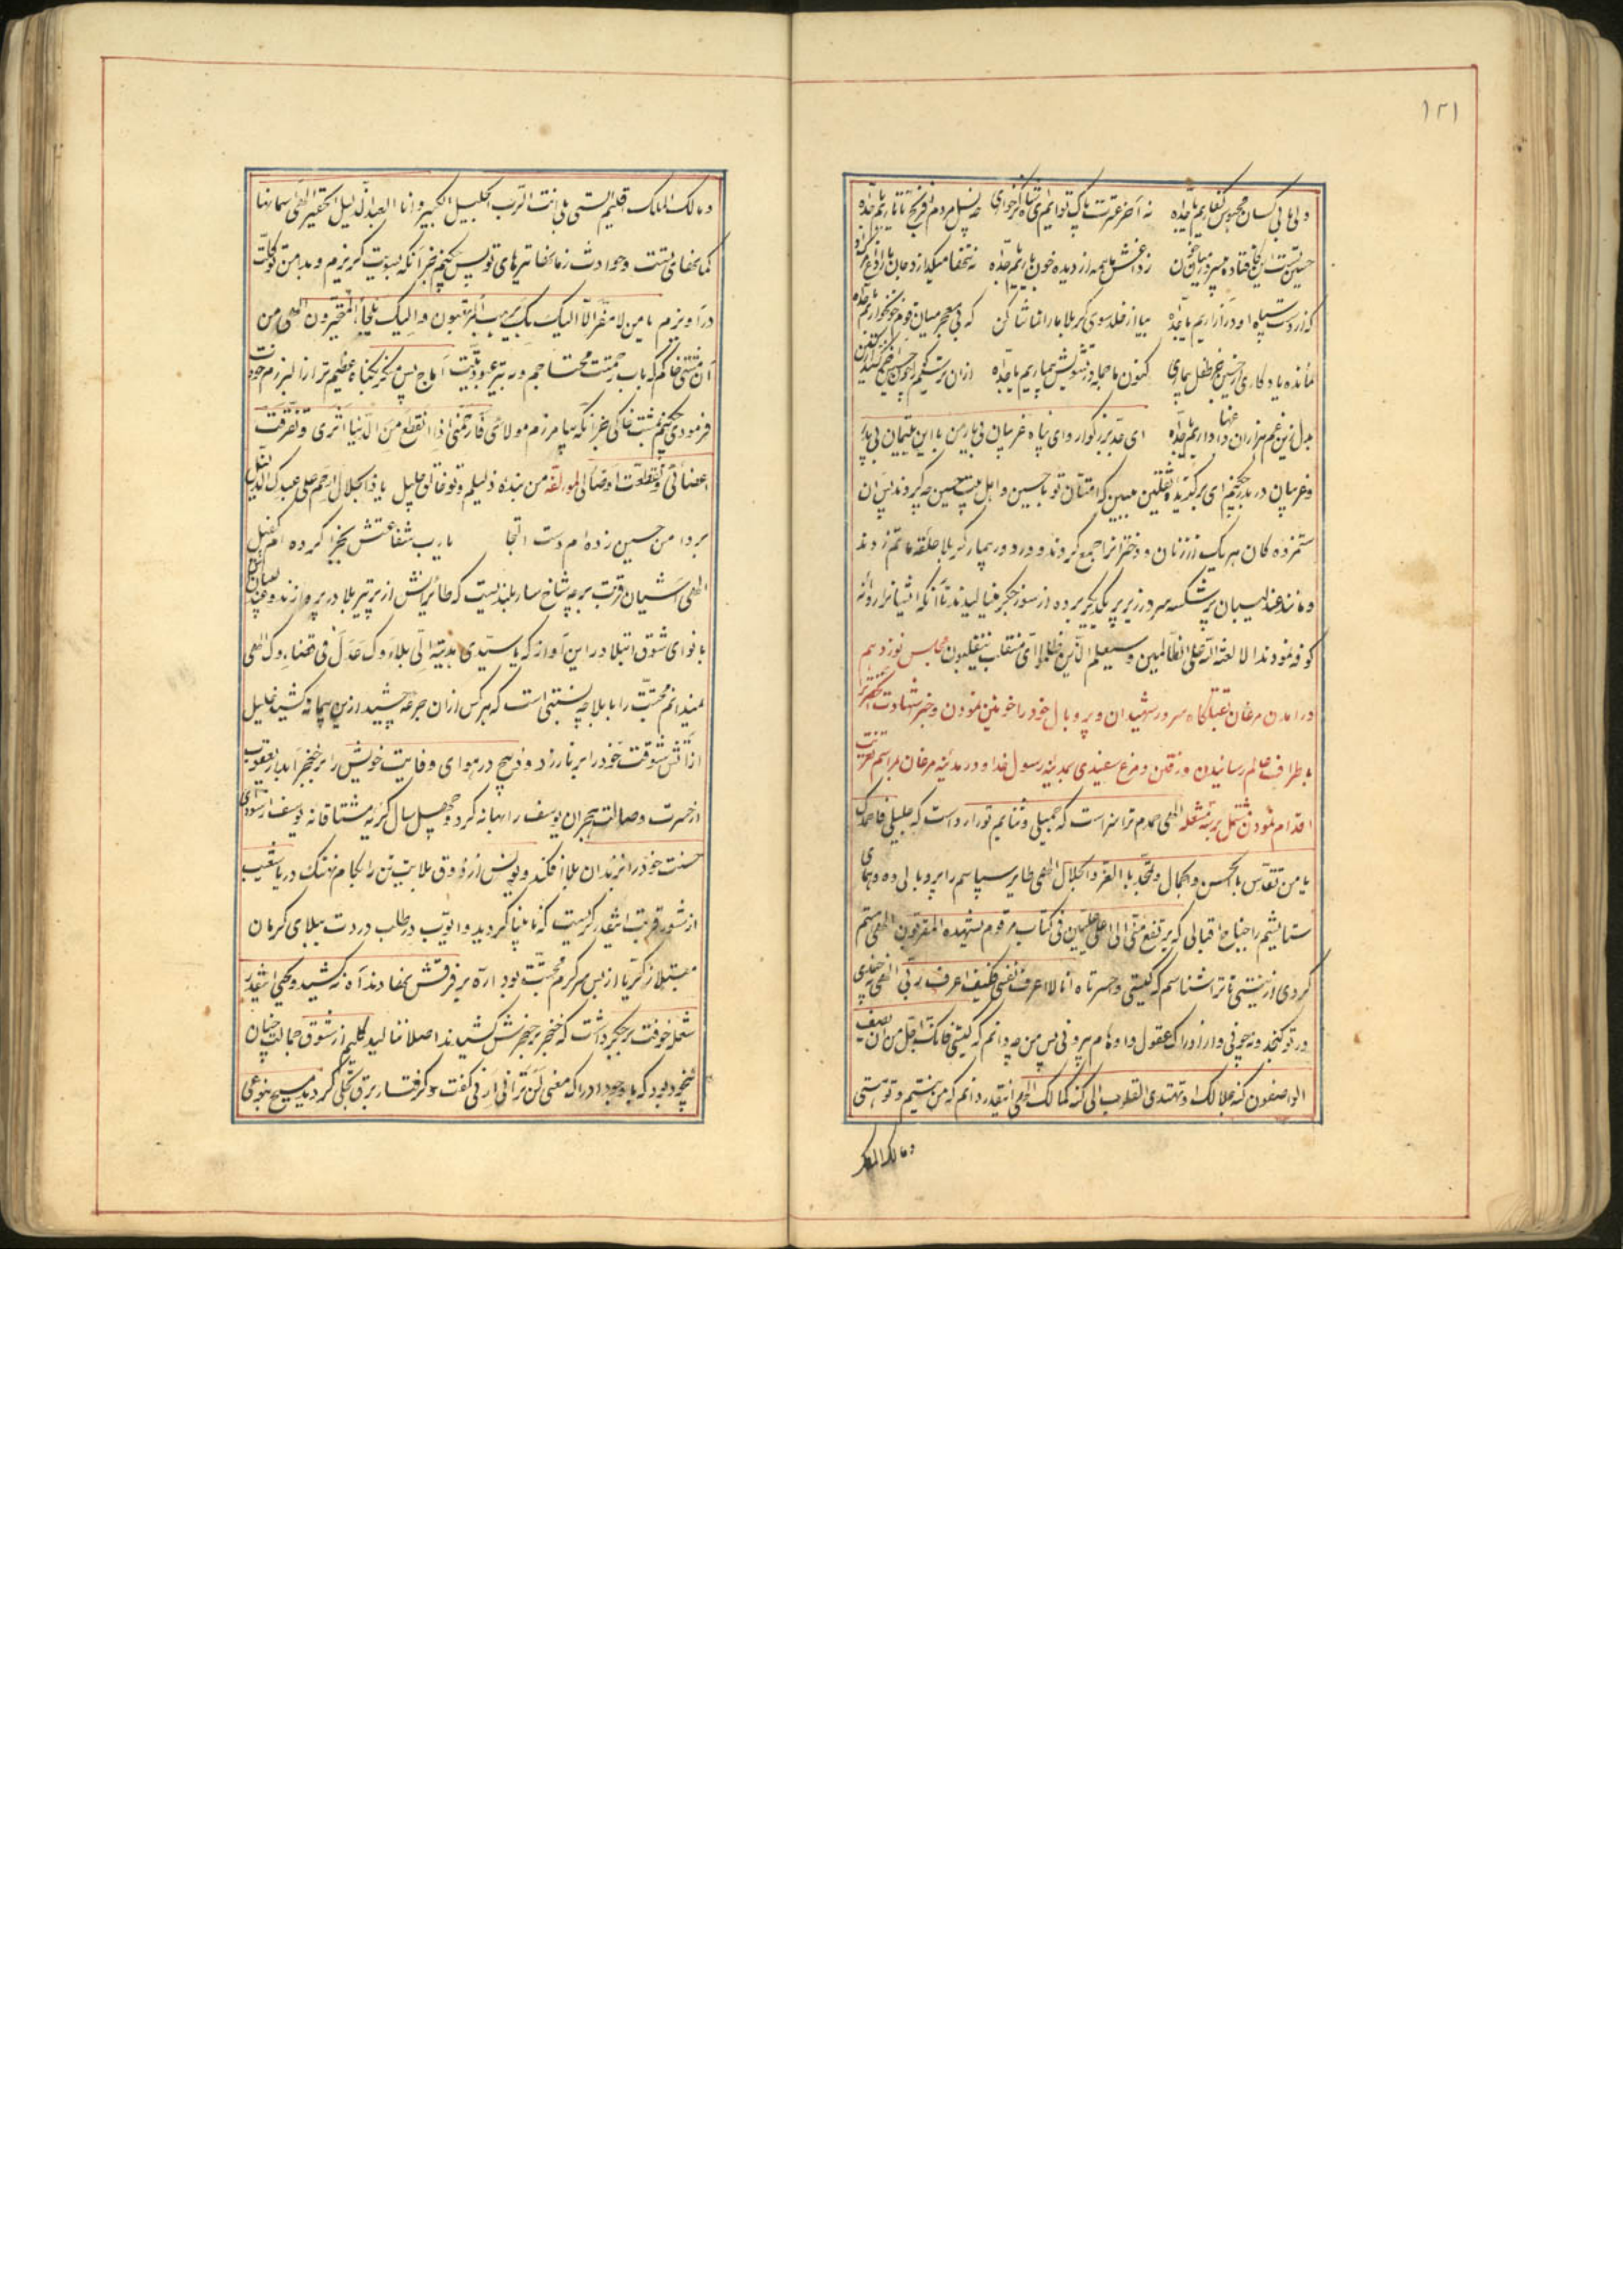 ۱۲۱
ولی ما بی کسان محبوس کفاریم یا جداه نه آخر عترت پاک توایم ای شاه
حسین تست این
که از دست سپاه او در آزاریم یا جداه بیا از خلد سوی کربلا ما را تماشا کن که بی معجر میان قوم خونخواریم یا جداه
مانده یادکاری از حسین جز طفل بیماری کنون ما جمله در تشویش بیماریم یا جداه
بدل زین غم هزاران داغها داریم یا جداه ای جد بزرکوار وای پناه غریبان بی یار من با این یتیمان بی پدر
وغریبان در بدر چکنم ای برکزیده ثقلین ببین که امتان تو با حسین و اهل بیت حسین چه کردند پس آن
ستمزده کان هر یک از زنان و دخترانرا جمع کردند و دور بیمار کربلا حلقه ماتم زدند
و مانند عندلیبان پر شکسته سر در زیر پر یکدیکر برده از سوز جکر مینالیدند تا آنکه ایشانرا روانه
کوفه نمودند الا لعنة الله علی الظالمین وسیعلم الذین ظلموا ای منقلب ینقلبون مجلس نوزدهم
در آمدن مرغان بقتلکاه سرور شهیدان و پر و بال خود را خونین نمودن و خبر شهادت
باطراف عالم رسانیدن و رفتن و مرغ سفیدی بمدینه رسول خدا و در مدینه مرغان مراسم تعزیت
اقدام نمودن مشتمل بر سه شعله الهی حمدم ترا سزاست که جمیلی و ثنایم تو را رواست که جلیلی فاحمدک
یا من تقدس بالحسن والکمال و تحمد بالعز والجلال الهی طایر سپاسم را پر و بالی ده و همای
ستایشم را جناح اقبالی که یرتفع منی الی اعلی علیین فی کتاب مرقوم یشهده المقربون الهی هستم
کردی از نیستی تا ترا شناسم که کیستی واحسرتاه انا لا اعرف نفسی فکیف اعرف ربی الهی نه چندی
در تو کنجد و نه چونی و از ادراک عقول و اوهام بیرونی پس من چه دانم که کیستی فانک اجل من ان یصف
الواصفون کنه جلالک او تهتدی القلوب الی کنه کمالک الهی اینقدر دانم که من نیستم و تو هستی
ومالک الملک
ومالک الملک اقلیم الستی بل انت الرب الجلیل الکبیر وانا العبد الذلیل الحقیر الهی آسمانها
کمانخانه تست وحوادث زمانه تیرهای تو پس چکنم جز آنکه بسویت کریزم و بدامنت
درآویزم یا من لا مفر الا الیک بک یرهب المرتعبون والیک یلجأ المتحیرون الهی من
آن مشتی خاکم که باب رحمتت محتاجم و به تیر عبودیت آماج پس
فرمودی چکنم مشت خاکی جز آنکه بیامرزم مولائی فارحمنی اذا انقطع من الدنیا اثری وتفرقت
اعضائی وتقطعت اوصالی لمؤلفه من بنده ذلیلم و تو خالق جلیل یا ذا الجلال ارحم علی عبدک الذلیل
بر دامن حسین زده ام دست التجا یا رب شفاعتش بجزا کرده ام کفیل
الهی آشیان قربت بر چه شاخسار بلندیست که طائرانش از تیر بلا در پروازند
با نوای شوق ابتلا در این آوازه که یا سیدی بدیة الی بلاءک عدل فی قضاءک الهی
نمیدانم محبت را با بلا چه نسبتی است که هرکس از آن جرعه چشید از این پیمانه کشید خلیل
از آتش شوقت خود را بر نار زد و ذبیح در هوای وفایت خویش را بر خنجر آبدار یعقوب
از حسرت وصالت هجران یوسف را بهانه کرد و چهل سال کریه مشتاقانه یوسف از سودای
حسنت خود را بزندان بلا افکند و یونس از ذوق بلایت تن را بکام نهنک دریا شعیب
از شور قربت اینقدر کریست که نابینا کردید و ایوب در طلب دردت ببلای کرمان
مبتلا زکریا از بس سرکرم محبتت بود اره بر فرقش نهادند آه نکشید و یحیی اینقدر
شعله خوفت بر جکر داشت که خنجر بر حنجرش کشیدند اصلا ننالید کلیم از شوق جمالت چنان
بیخود بود که با وجود ادراک معنی لن ترانی ارنی کفت و کرفتار برق تجلی کردید مسیح بنوعی